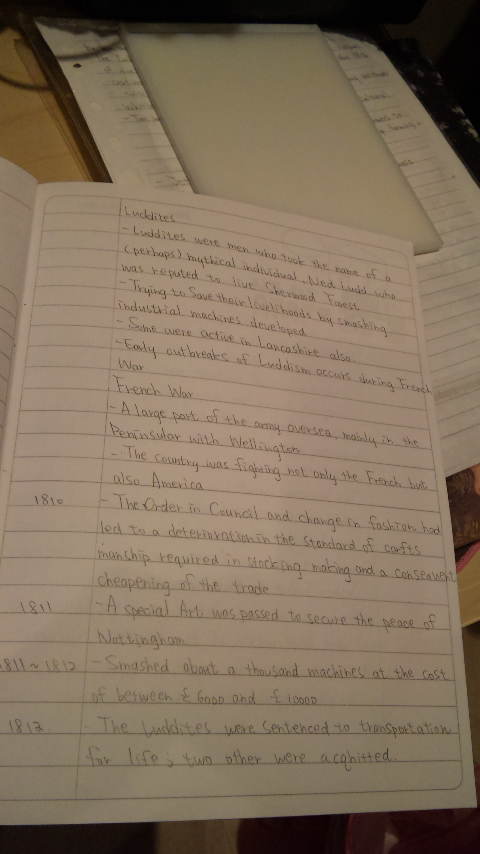 Luddites
- Luddites were men who took the name of a
(perhaps) mythical individual, Ned Ludd who
was reputed to live Sherwod Forest
- Trying to save their livelihoods by smashing
industrial machines developed
- Some were active in Lancashire also.
- Early outbreaks of Luddism occurs during French
War
French War
- A large part of the army oversea, mainly in the
Peninsular with Wellington
- The country was fighting not only the French but
also America
1810 - The Order in Council and change in fashion had
led to a deterioration in the standard of carfts
manship required in stocking making and a consequent
cheapening of the trade
1811 - A special Act was passed to secure the peace of
Nottingham
1811~1812 - Smashed about a thousand machines at the cost
of between £ 6000 and £ 10000
1812 - The Luddites were sentenced to transportation
for life, two other were acqhitted.